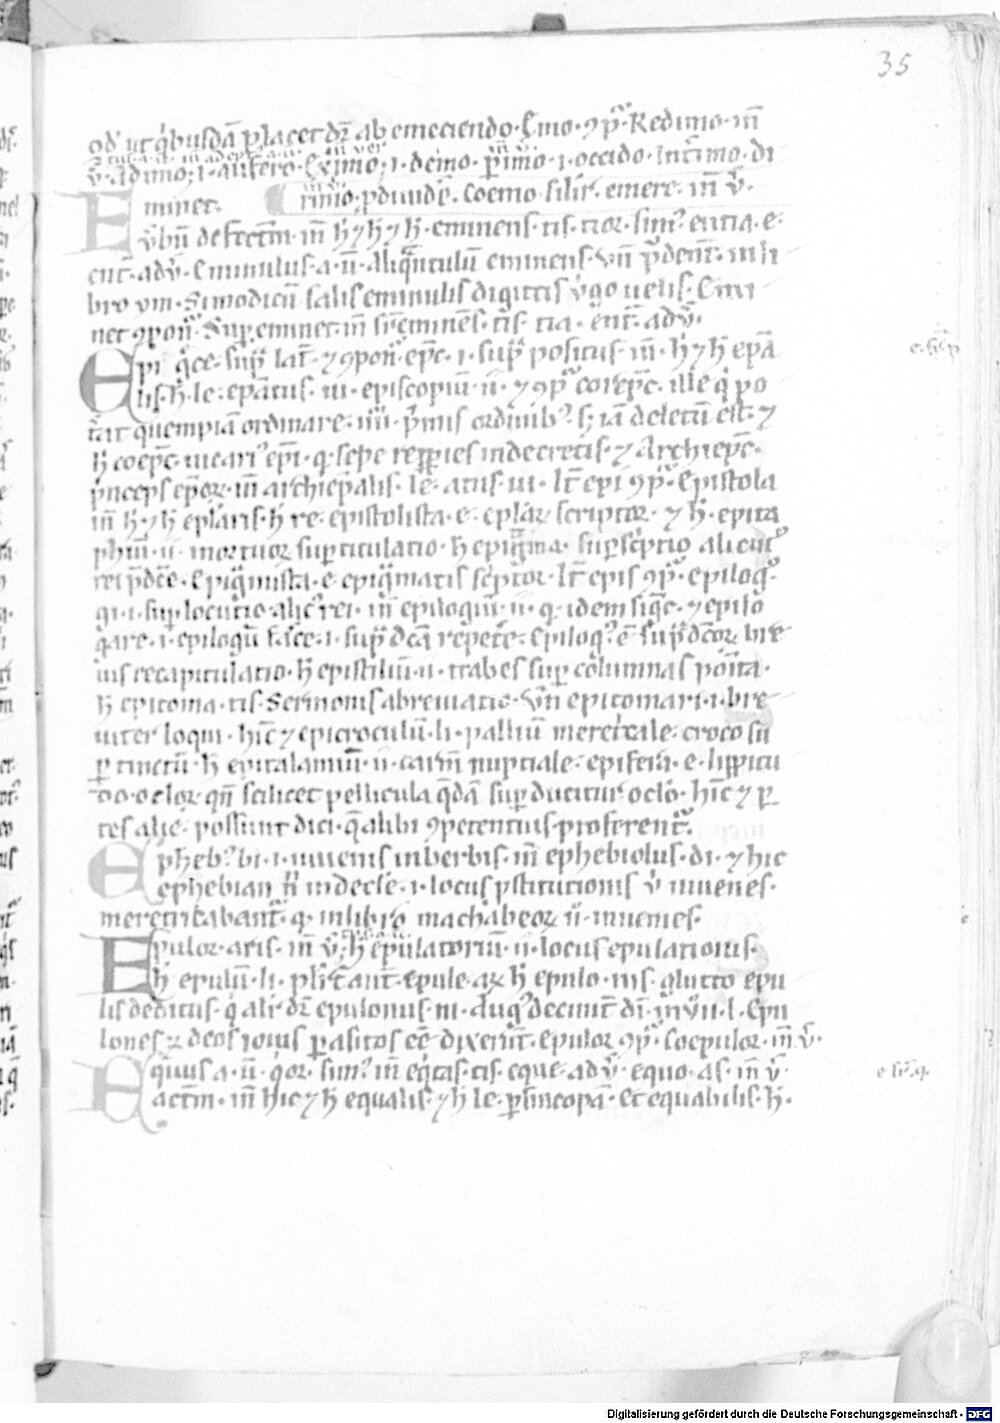 35
od ut q̇busdā placet dr̄ ab emeciendo. Emo. ꝯp̄. Redimo. in̄
v̄. Adimo. i. aufero. Eximo. i. demo. p̄imo. i. occido. Int̄imo. di
rimo. p diuiđe. Coemo. simłr. emere. in̄ v̄.
Eminet.
v̄bū defectm̄. in̄ h̄ ⁊ h̄ ⁊ h̄. eminens. tis. tior. simꝰ. entia. e
ent̄. adv̄. Eminulus. a. ū. Aliq̄ntulū eminens. vn̄ p̄dent̄. in li
bro vm. Si modicū salis eminulis digitis v̄go uelis. Emi
net ꝯpon̄. Suꝑeminet. in̄ suꝑeminēs. tis. tia. ent̄. adv̄.
Epi g̊ce. sup̄ lat̄. ⁊ ꝯpon̄. ep̄c. i. sup̄ positus. in̄. h̄ ⁊ h̄ epā
lis. h̄. le. epātus. ui. episcopiū. ii. ⁊ ꝯp̄ corep̄c. ille q̇ po
t̄at quempiā ordinare. iiii. p̄mis ordinibꝫ. sꝫ iā deletū est. ⁊
h̄ coep̄c. uicariꝰ ep̄i. q. sepe reꝑies in decretis. ⁊ Archiep̄c.
p̄nceps ep̄oꝝ. in̄ archiep̄alis. le. atus. ui. It̄ epi ꝯp̄. Epistola
in̄ h̄ ⁊ h̄ epłaris. h̄ re. epistolista. e. epłaꝝ scriptor. ⁊ h̄. epita
phiū. ii. mortuoꝝ suꝑtitulatio. h̄ epigma. suꝑscptio alicuiꝰ
rei p̄dc̄e. Epigmista. e. epigmatis sc̄ptor. It̄ epis ꝯp̄. epilogꝰ.
gi. i. suꝑ. locutio alicꝰ rei. in̄ epilogiū. ii. q. idem sigc̄. ⁊ epilo
gare. i. epilogū fac̄e. i. sup̄dc̄a repet̄e. Epilogꝰ ē sup̄dc̄oꝝ bre
uis recapitulatio. h̄ epistiliū. ii. trabes suꝑ columnas poīta.
h̄ epitoma. tis. Sermonis abreuiatio. Vn̄ epitomari. i. bre
uiter loqui. hīc ⁊ epicroculū. li. palliū meretcale. croco su
ꝑ tinctū. h̄ epitalamiū. ii. carm̄ nuptiale. epifera. e. lippitu
do. ocloꝝ. qn̄ scilicet pellicula q̄dā suꝑducitur oclō. hīc ⁊ ꝑ
tes alie. possunt dici. q̄ alibi ꝯpetentius proferent̄.
Ephebꝰ. bi. i. iuuenis inberbis. in̄ ephebiolus. di. ⁊ hic
ephebian. n̄ indecłe. i. locus ꝓstitutionis v̄ iuuenes.
meretricabant̄. q. in libro machabeoꝝ ii. inuenies.
Epulor. aris. in̄ v̄. h̄ epulatoriū. ii. locus epulationis.
h̄ epulū. li. plr̄ tant̄. Epule. aꝝ. h̄ epulo. nis. glutto epu
lis deditus. q̇ alī dr̄ epulonus. ni. Augꝰ de ciuit̄ dī. in vii. l. Epu
lones ⁊ deos iouis ꝑasitos eē dixerūt. Epulor ꝯp̄. Coepulor. in̄ v̄.
Equus a. ū. q̇or. simꝰ. in̄ eq̇tas. tis. eque. adv̄. equo. as. in̄ v̄
actm̄. in̄ hic ⁊ h̄ equalis. ⁊ h̄ le. ꝑ sincopā. Et equabilis. h̄.
Digitalisierung gefördert durch die Deutsche Forschungsgemeinschaft - DFG